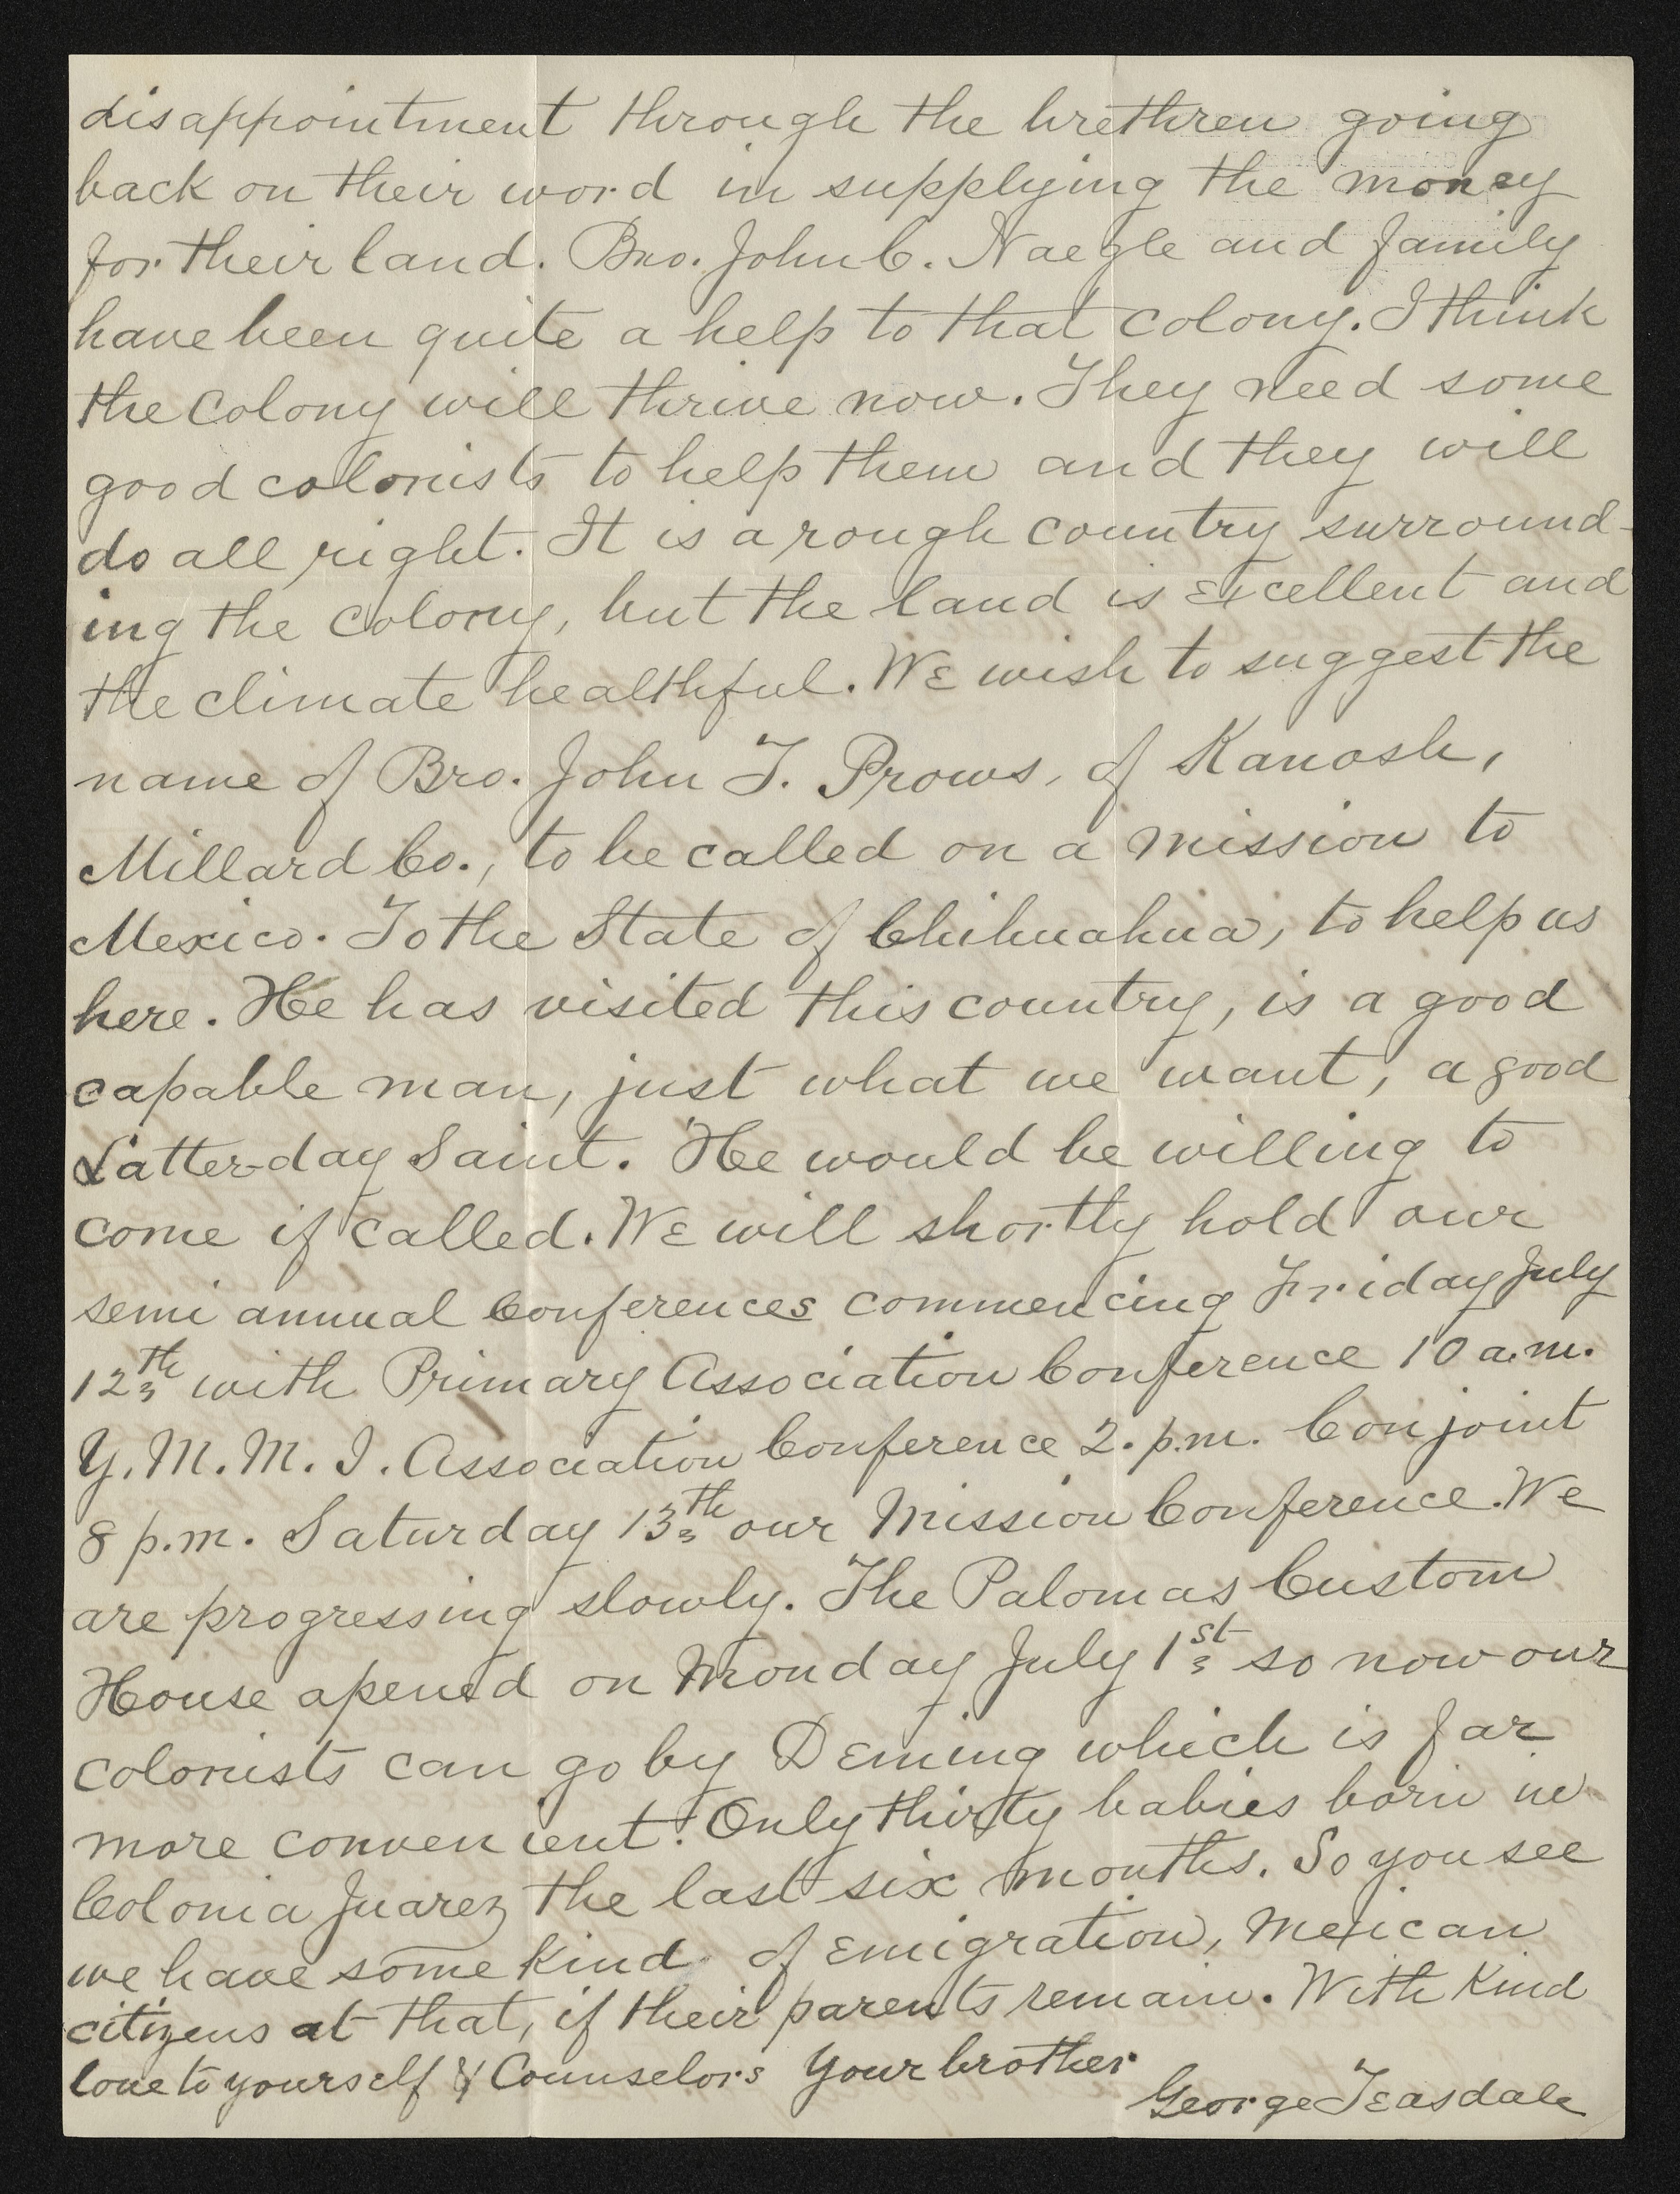 disappointment through the brethren going
back on their word in supplying the money
for their land. Bro. John C. Naegle and family
have been quite a help to that colony. I think
the colony will thrive now. They need some
good colonists to help them and they will
do all right. It is a rough country surround-
ing the colony, but the land is excellent and
the climate healthful. We wish to suggest the
name of Bro. John T. Prows, of Kanosh,
Millard Co., to be called on a mission to
Mexico. To the State of Chihuahua, to help us
here. He has visited this country, is a good
capable man, just what we want, a good
Latter-day Saint. He would be willing to
come if called. We will shortly hold our
semi annual Conferences commencing Friday July
12th with Primary Association Conference 10 a.m.
Y. M. M. I. Association Conference 2. p.m. Conjoint
8 p.m. Saturday 13th our Mission Conference. We
are progressing slowly. The Palomas Custom
House opened on Monday July 1st so now our
colonists can go by Deming which is far
more convenient. Only thirty babies born in
Colonia Juarez the last six months. So you see
we have some kind of emigration, Mexican
citizens at that, if their parents remain. With kind
love to yourself & Counselors Your brother
George Teasdale